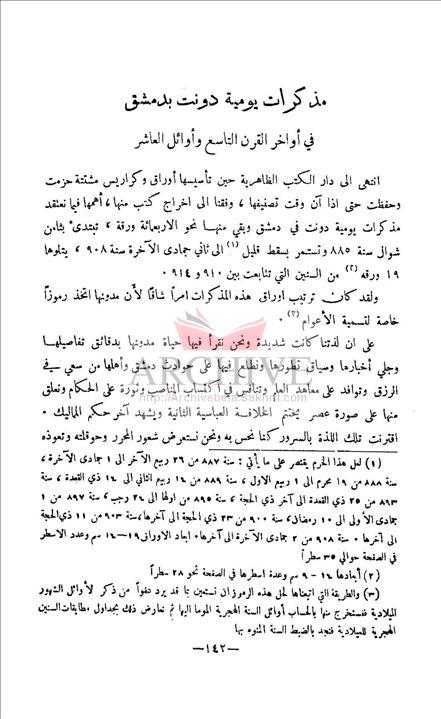 مذكرات يومية دونت بدمشق
في أواخر القرن التاسع وأوائل العاشر
انتهى الى دار الكتب الظاهرية حين تأسيسها أوراق وكراريس مشتتة حزمت
وحفظت حتى اذا آن وقت تصنيفها ، وفقنا الى اخراج كتب منها ، أهمها فيما نعتقد
مذكرات يومية دونت في دمشق وبقي منها نحو الاربعمائة ورقة ، تبتدئ بثامن
شوال سنة ٨٨٥ وتستمر بسقط قليل (١) الى ثاني جمادى الآخرة سنة ٩٠٨ ، يتلوها
١٩ ورقة (٢) من السنين التي تتابعت بين ٩١٠ و ٩١٤ ٠
ولقد كان ترتيب اوراق هذه المذكرات امراً شاقاً لأن مدونها اتخذ رموزاً
خاصة لتسمية الأعوام (٣) ٠
على ان لذتنا كانت شديدة ونحن نقرأ فيها حياة مدونها بدقائق تفاصيلها
وجلي أخبارها وسياق تطورها ونطلع فيها على حوادث دمشق وأهلها من سعي في
الرزق وتوافد على معاهد العلم وتنافس في اكتساب المناصب وثورة على الحكام ونعلق
منها على صورة عصر يختتم الخلافة العباسية الثانية ويشهد آخر حكم المماليك ٠
اقترنت تلك اللذة بالسرور كنا نحس به ونحن نستعرض شعور المحرر وحوقلته وتعوذه
(١) لعل هذا الخرم يقتصر على ما يأتي : سنة ٨٨٧ من ٢٦ ربيع الآخر الى ١ جمادى الآخرة ،
سنة ٨٨٨ من ١٩ محرم الى ١ ربيع الاول ، سنة ٨٨٩ من ١٤ ربيع الثاني الى ١٦ ذي القعدة ، سنة
٨٩٣ من ٢٥ ذي القعدة الى آخر ذي الحجة ، سنة ٨٩٥ من اولها الى ٢٦ رجب ، سنة ٨٩٧ من ١
جمادى الأولى الى ١٠ رمضان ، سنة ٩٠٠ من ٢٣ ذي الحجة الى آخرها ، سنة ٩٠٣ من ١١ ذي الحجة
الى آخرها ٠ سنة ٩٠٨ من ٢ جمادى الآخرة الى آخرها ٠ ابعاد الاوراق ١٩–١٤ سم وعدد الاسطر
في الصفحة حوالي ٣٥ سطراً
(٢) أبعادها ١٦ – ٩ سم وعدد اسطرها في الصفحة نحو ٢٨ سطراً
(٣) والطريقة التي اتبعناها لحل هذه الرموز ان نستعين بما قد يرد عفواً من ذكر لأوائل الشهور
الميلادية فنستخرج منها بالحساب أوائل السنة الهجرية الموما اليها ثم نعارض ذلك بجداول مطابقات السنين
الهجرية للميلادية فنجد بالضبط السنة المنوه بها
—١٤٢—
ARCHIVE
http://Archivebeta.Sakhrit.com